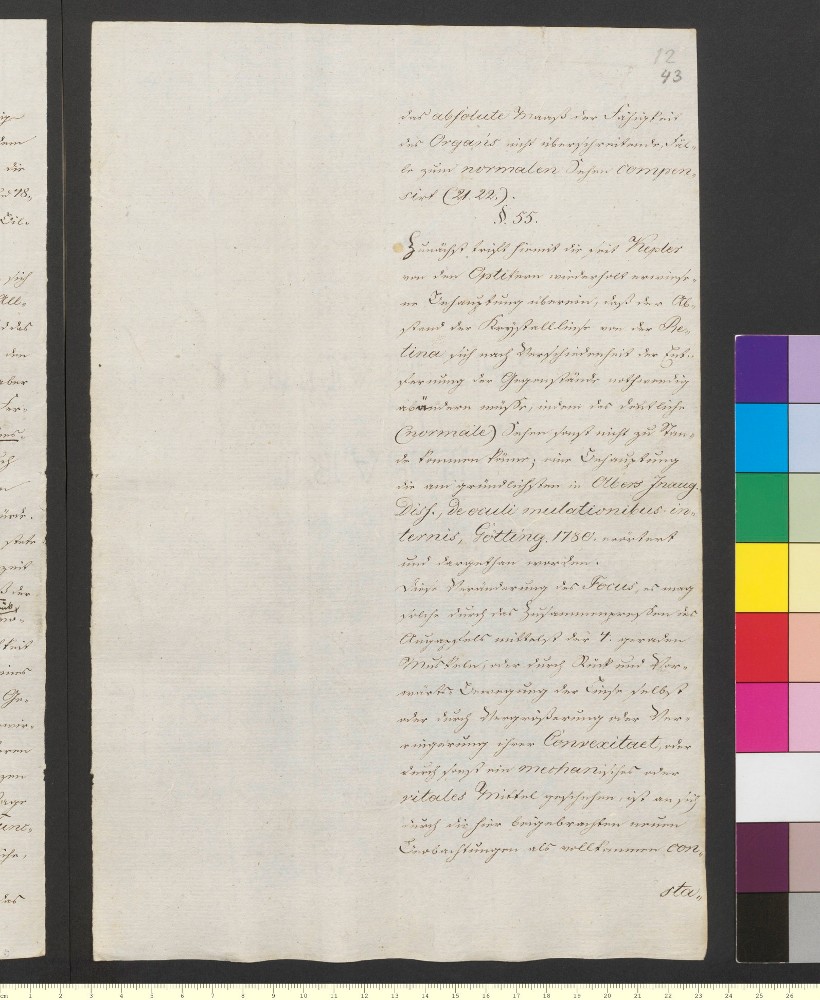 12
43
das absolute Maaß der Fähigkeit
des Organs nicht überschreitende Fäl-
le zum normalen Sehen compen-
sirt (21. 22.).
§. 55.
Zunächst trifft hiemit die seit Kepler
von den Optikern wiederholt erwiese-
ne Behauptung überein, daß der Ab-
stand der Krystalllinse von der Re-
tina sich nach Verschiedenheit der Ent-
fernung der Gegenstände nothwendig
abändern müsse, indem das deutliche
(normale) Sehen sonst nicht zu Stan-
de kommen könne; eine Behauptung
die am gründlichsten in Olbers Inaug.
Diss., de oculi mutationibus in-
ternis, Götting. 1780. erörtert
und dargethan worden.
Diese Veränderung des Focus, es mag
solche durch das Zusammenpressen des
Augapfels mittelst der 4. geraden
Muskeln, oder durch Rück und Vor-
wärts Bewegung der Linse selbst
oder durch Vergrößerung oder Ver-
ringerung ihrer Convexitaet, oder
durch sonst ein mechanisches oder
vitales Mittel geschehen, ist an sich
durch die hier beigebrachten neuen
Beobachtungen als vollkommen con-
sta-